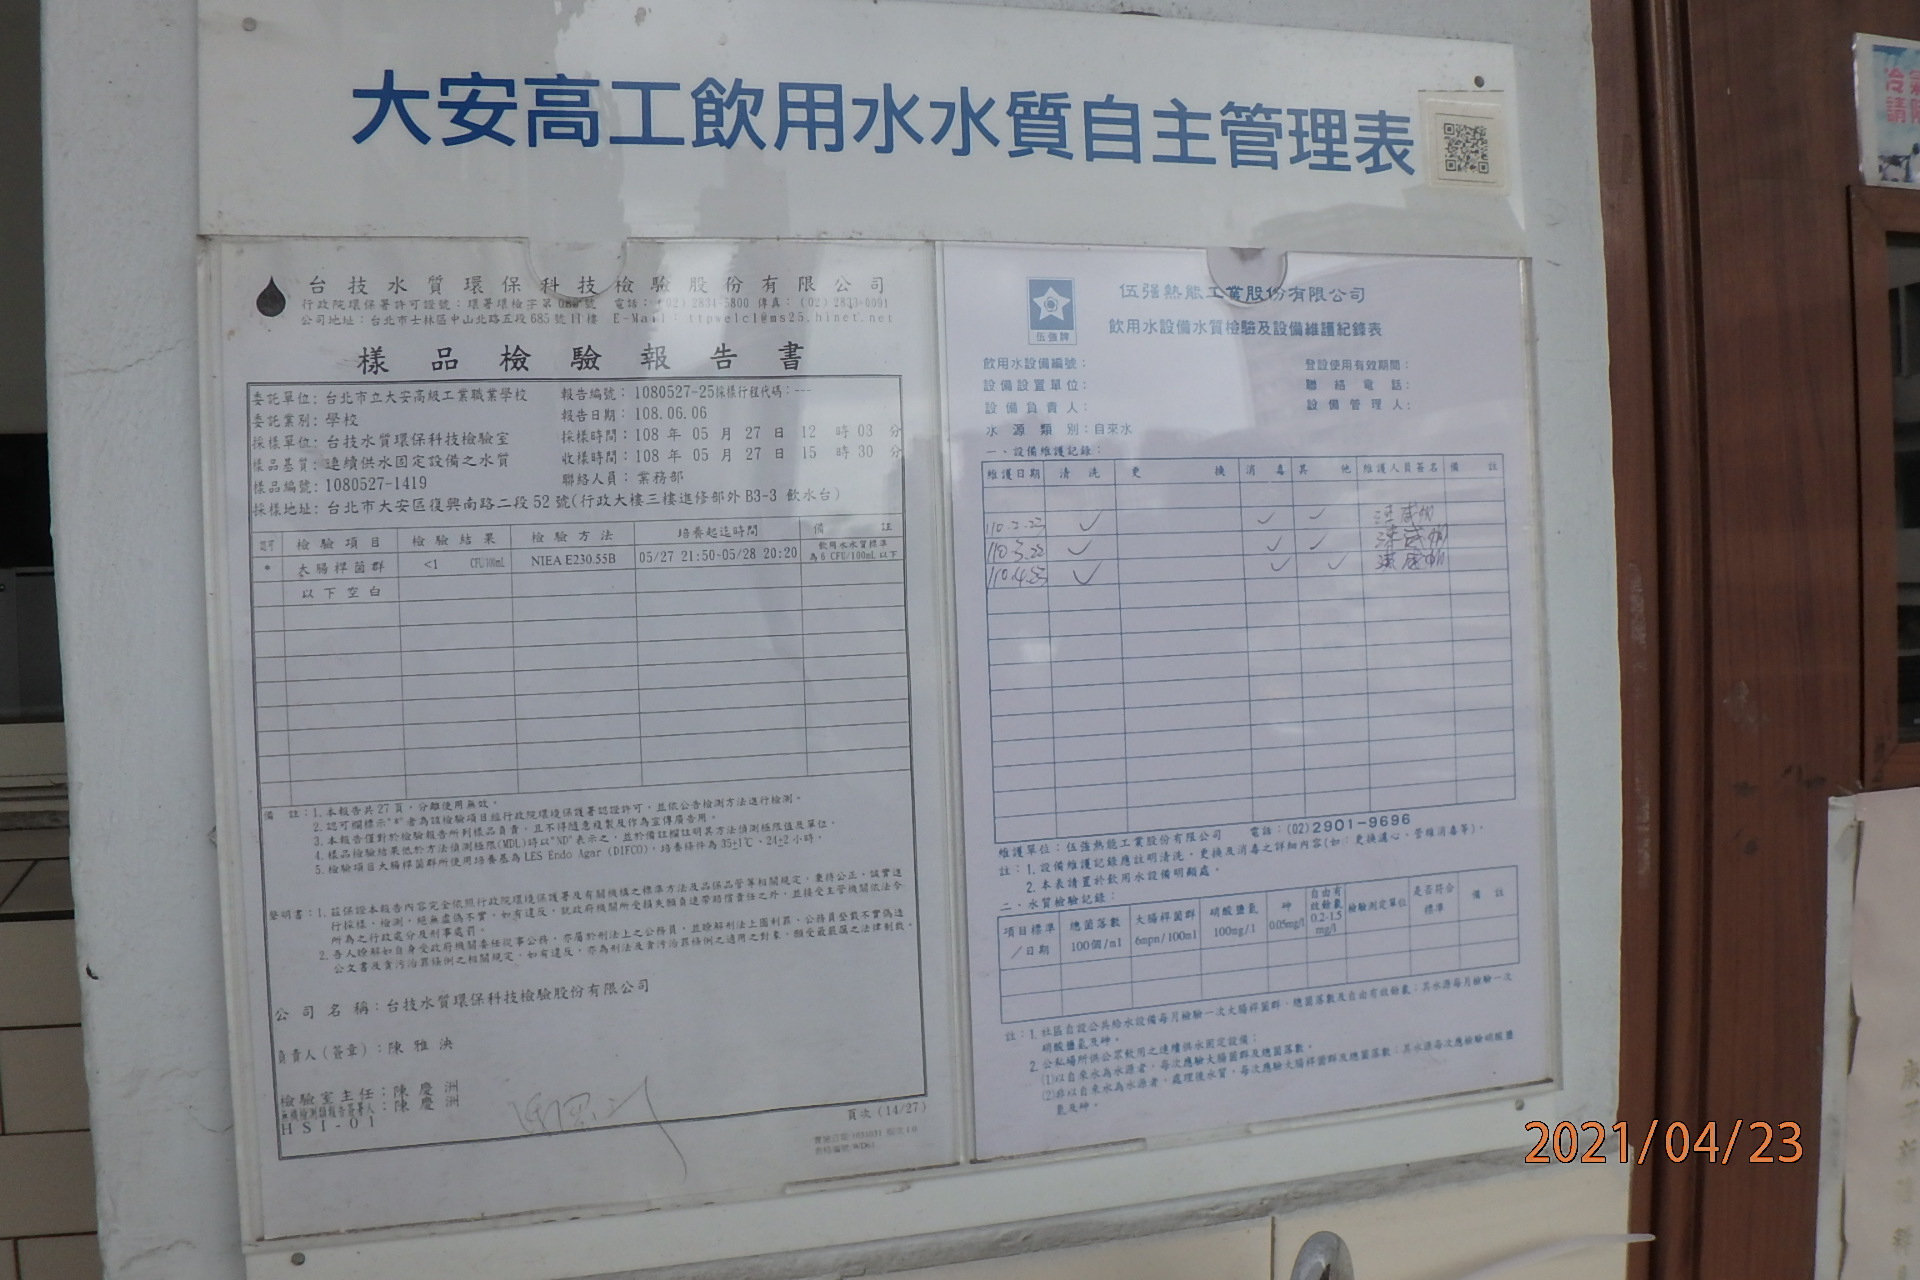 大安高工飲用水水質自主管理表
台技水質環保科技檢驗股份有限公司
行政院環保署許可證號：環署環檢字第 號 電話：(02)2831-5800 傳真：(02)2833-0091
公司地址：台北市士林區中山北路五段685號11樓 E-Mail: ttpwelcl@ms25.hinet.net
樣品檢驗報告書
委託單位：台北市立大安高級工業職業學校 報告編號：1080527-25採樣行程代碼：---
委託業別：學校 報告日期：108.06.06
採樣單位：台技水質環保科技檢驗室 採樣時間：108年05月27日12時03分
樣品基質：連續供水固定設備之水質 收樣時間：108年05月27日15時30分
樣品編號：1080527-1419 聯絡人員：業務部
採樣地址：台北市大安區復興南路二段52號(行政大樓三樓進修部外B3-3 飲水台)
認可 檢驗項目 檢驗結果 檢驗方法 培養起迄時間 備註
* 大腸桿菌群 <1 CFU/100mL NIEA E230.55B 05/27 21:50-05/28 20:20 飲用水水質標準為6 CFU/100mL以下
以下空白
備 註：1.本報告共27頁，分離使用無效。
2.認可欄標示"*"者為該檢驗項目經行政院環境保護署認證許可，並依公告檢測方法進行檢測。
3.本報告僅對於檢驗報告所列樣品負責，且不得隨意複製及作為宣傳廣告用。
4.樣品檢驗結果低於方法偵測極限(MDL)時以"ND"表示之，並於備註欄註明其方法偵測極限值及單位。
5.檢驗項目大腸桿菌群所使用培養基為LES Endo Agar (DIFCO)，培養條件為35±1℃、24±2小時。
聲明書：1.茲保證本報告內容完全依照行政院環境保護署及有關機構之標準方法及品保品管等相關規定，秉持公正、誠實進
行採樣、檢測，絕無虛偽不實，如有違反，就政府機關所受損失願負連帶賠償責任之外，並接受主管機關依法令
所為之行政處分及刑事處罰。
2.吾人瞭解如自身受政府機關委任從事公務，亦屬於刑法上之公務員，並瞭解刑法上圖利罪、公務員登載不實偽造
公文書及貪污治罪條例之相關規定，如有違反，亦為刑法及貪污治罪條例之適用之對象，願受最嚴厲之法律制裁。
公司名稱：台技水質環保科技檢驗股份有限公司
負責人(簽章)：陳雅
檢驗室主任：陳慶洲
無機檢測類報告簽署人：陳慶洲
HSI-01
頁次(14/27)
伍強牌
伍強熱能工業股份有限公司
飲用水設備水質檢驗及設備維護紀錄表
飲用水設備編號： 登設使用有效期間：
設備設置單位： 聯絡電話：
設備負責人： 設備管理人：
水源類別：自來水
一、設備維護記錄：
維護日期 清洗 更換 消毒 其他 維護人員簽名 備註
110.2.23 ✓ ✓ ✓
110.3.22 ✓ ✓ ✓
110.4.23 ✓ ✓ ✓
維護單位：伍強熱能工業股份有限公司 電話：(02)2901-9696
註：1.設備維護記錄應註明清洗、更換及消毒之詳細內容(如：更換濾心、管維消毒等)。
2.本表請置於飲用水設備明顯處。
二、水質檢驗記錄：
項目標準／日期 總菌落數 100個/ml 大腸桿菌群 6mpn/100ml 硝酸鹽氮 100mg/l 砷 0.05mg/l 自由有效餘氯 0.2-1.5 mg/l 檢驗測定單位 是否符合標準 備註
註：1.社區自設公共給水設備每月檢驗一次大腸桿菌群、總菌落數及自由有效餘氯；其水源每月檢驗一次
硝酸鹽氮及砷。
2.公私場所供公眾飲用之連續供水固定設備：
(1)以自來水為水源者，每次應驗大腸桿菌群及總菌落數。
(2)非以自來水為水源者，處理後水質，每次應驗大腸桿菌群及總菌落數；其水源每次應檢驗硝酸鹽
氮及砷。
2021/04/23